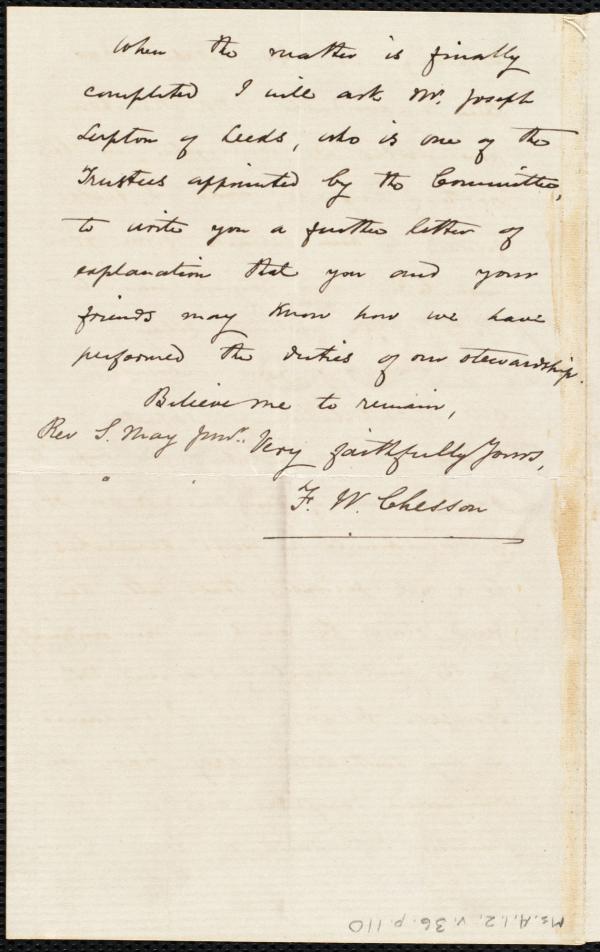 When the matter is finally
completed I will ask Mr. Joseph
Lupton of Leeds, who is one of the
Trustees appointed by the Committee,
to write you a further letter of
explanation that you and your
friends may know how we have
performed the duties of our stewardship.
Believe me to remain,
Rev S. May Junr. Very faithfully Yours,
F. W. Chesson
Ms.A.1.2.v.36.p.110